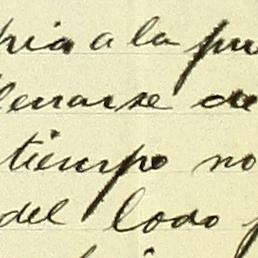 a la
llenarse de
tiempo no
del lodo